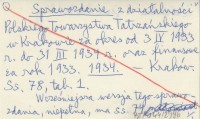 Sprawozdanie z działalności
Polskiego Towarzystwa Tatrzańskiego
w Krakowie za okres od 3 IV 1933
r. do 31 III 1934 r. oraz finansowe
za rok 1933. 1934. – Kraków.
Ss. 78, tab. 1.
Wcześniejsza wersja tego sprawo-
zdania, niepełna, ma ss. 74